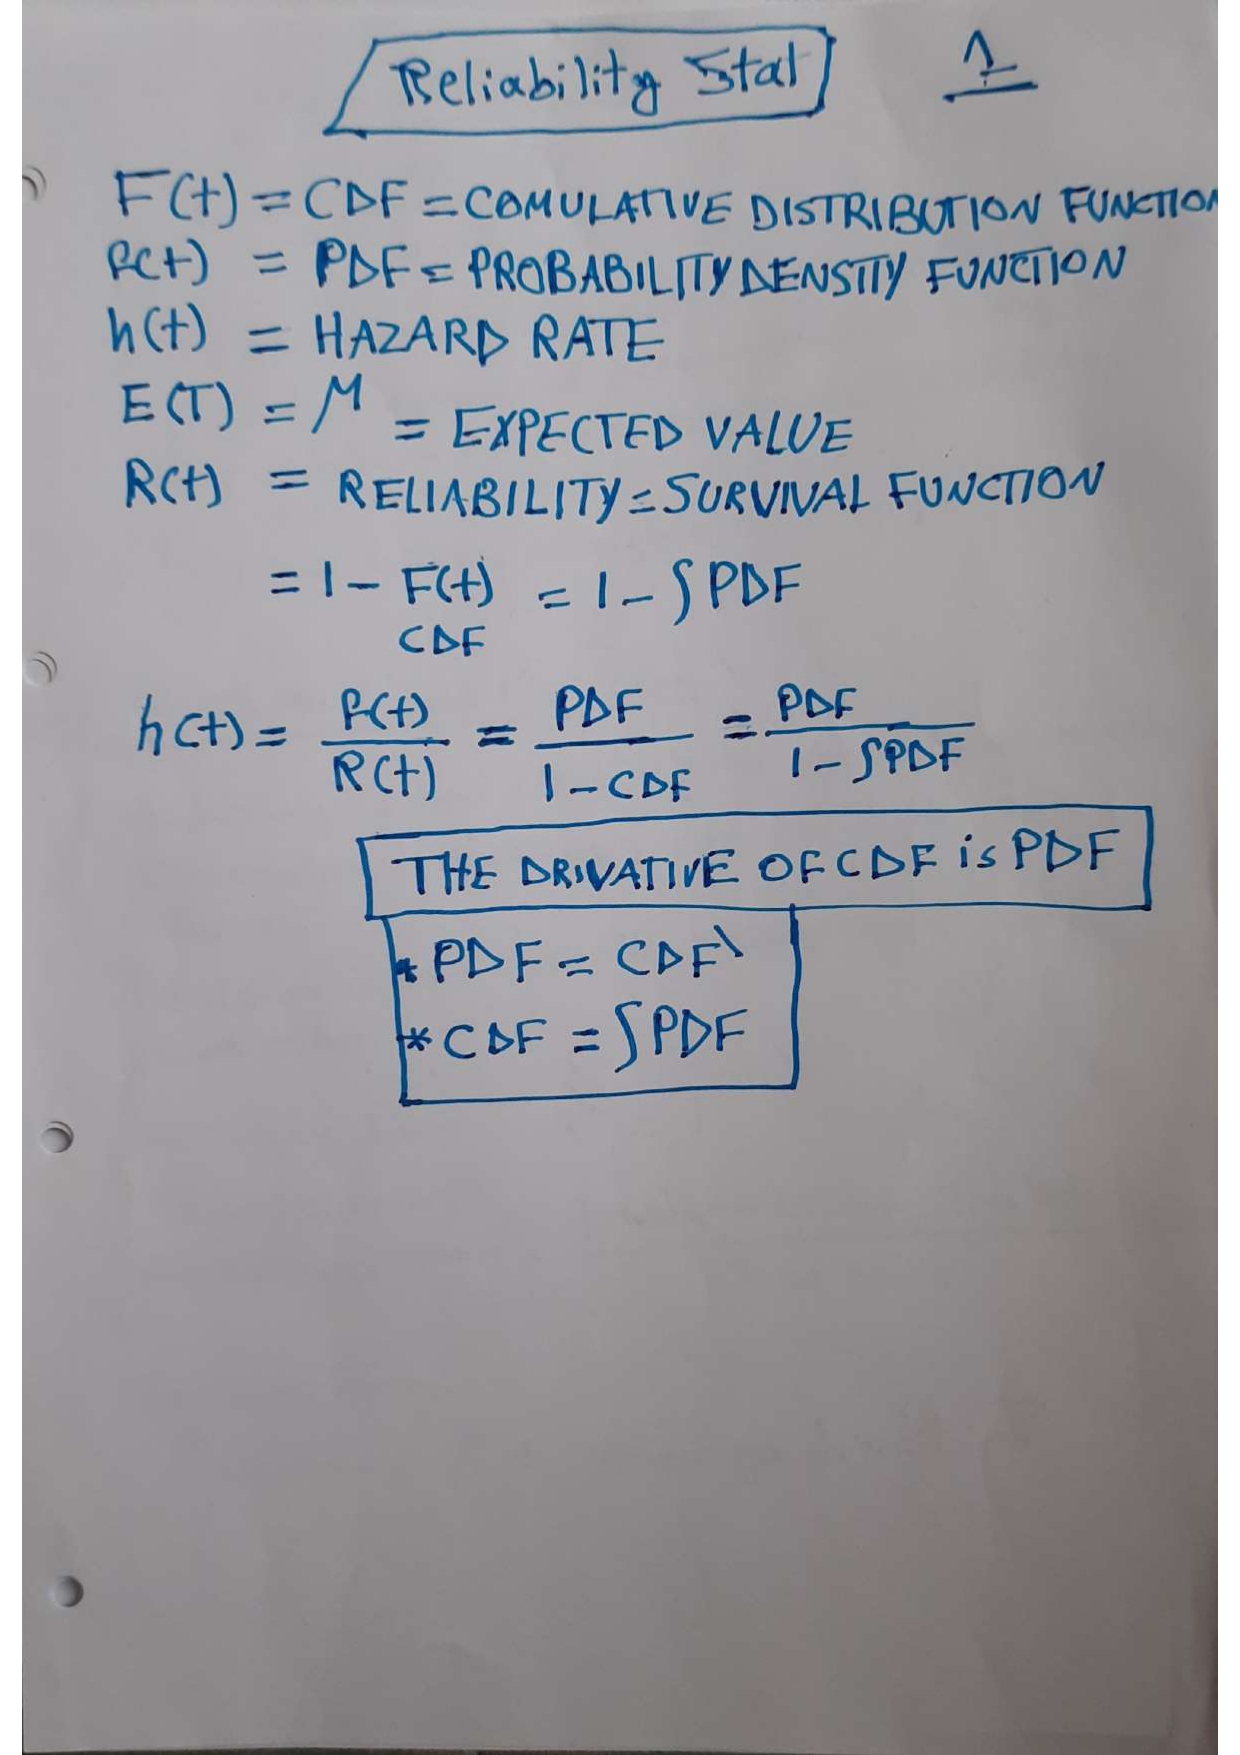 Reliability Stat
1
F(t) = CDF = COMULATIVE DISTRIBUTION FUNCTION
f(t) = PDF = PROBABILITY DENSITY FUNCTION
h(t) = HAZARD RATE
E(T) = M = EXPECTED VALUE
R(t) = RELIABILITY = SURVIVAL FUNCTION
= 1 - F(t) = 1 - ∫ PDF
CDF
h(t) = f(t)/R(t) = PDF/1 - CDF = PDF/1 - ∫PDF
THE DRIVATIVE OF CDF is PDF
* PDF = CDF\
* CDF = ∫ PDF